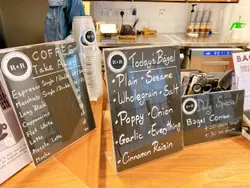 R&R
COFFEE
Take Away
Espresso Single/Double
Macchiato Single/Double
Long Black
Cappuccino
Flat White
Latte
Matcha Latte
Mocha
R&R
Todays Bagel
• Plain • Sesame
• Wholegrain • Salt
• Poppy • Onion
• Garlic • Everything
• Cinnamon Raisin
R&R
Daily Special
Bagel Combo